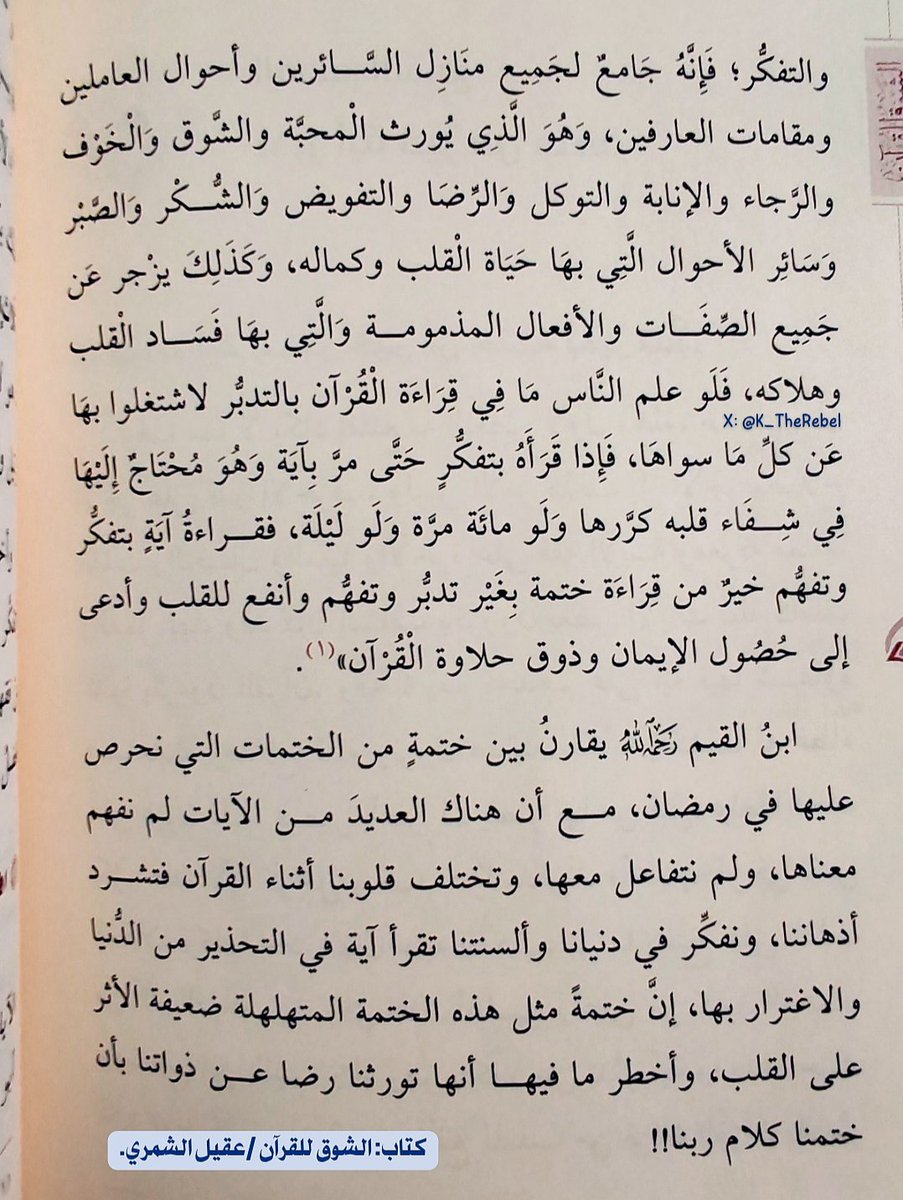 والتفكُّر؛ فَإِنَّهُ جَامعٌ لجَمِيع منَازِل السَّائرين وأحوال العاملين
ومقامات العارفين، وَهُوَ الَّذِي يُورث الْمحبَّة والشَّوق وَالْخَوْف
والرَّجاء والإنابة والتوكل وَالرِّضَا والتفويض وَالشُّكْر وَالصَّبْر
وَسَائِر الأحوال الَّتِي بهَا حَيَاة الْقلب وكماله، وَكَذَلِكَ يزْجر عَن
جَمِيع الصِّفَات والأفعال المذمومة وَالَّتِي بهَا فَسَاد الْقلب
وهلاكه، فَلَو علم النَّاس مَا فِي قِرَاءَة الْقُرْآن بالتدبُّر لاشتغلوا بهَا
X: @K_TheRebel
عَن كلِّ مَا سواهَا، فَإِذا قَرَأَهُ بتفكُّرٍ حَتَّى مرَّ بِآيَة وَهُوَ مُحْتَاجٌ إِلَيْهَا
فِي شِفَاء قلبه كرَّرها وَلَو مائَة مرَّة وَلَو لَيْلَة، فقراءةُ آيَةٍ بتفكُّر
وتفهُّم خيرٌ من قِرَاءَة ختمة بِغَيْر تدبُّر وتفهُّم وأنفع للقلب وأدعى
إلى حُصُول الإيمان وذوق حلاوة الْقُرْآن»(١).
ابنُ القيم رَحِمَهُ اللَّهُ يقارنُ بين ختمةٍ من الختمات التي نحرص
عليها في رمضان، مع أن هناك العديدَ من الآيات لم نفهم
معناها، ولم نتفاعل معها، وتختلف قلوبنا أثناء القرآن فتشرد
أذهاننا، ونفكِّر في دنيانا وألسنتنا تقرأ آية في التحذير من الدُّنيا
والاغترار بها، إنَّ ختمةً مثل هذه الختمة المتهلهلة ضعيفة الأثر
على القلب، وأخطر ما فيها أنها تورثنا رضا عن ذواتنا بأن
ختمنا كلام ربنا!!
كتاب: الشوق للقرآن /عقيل الشمري.